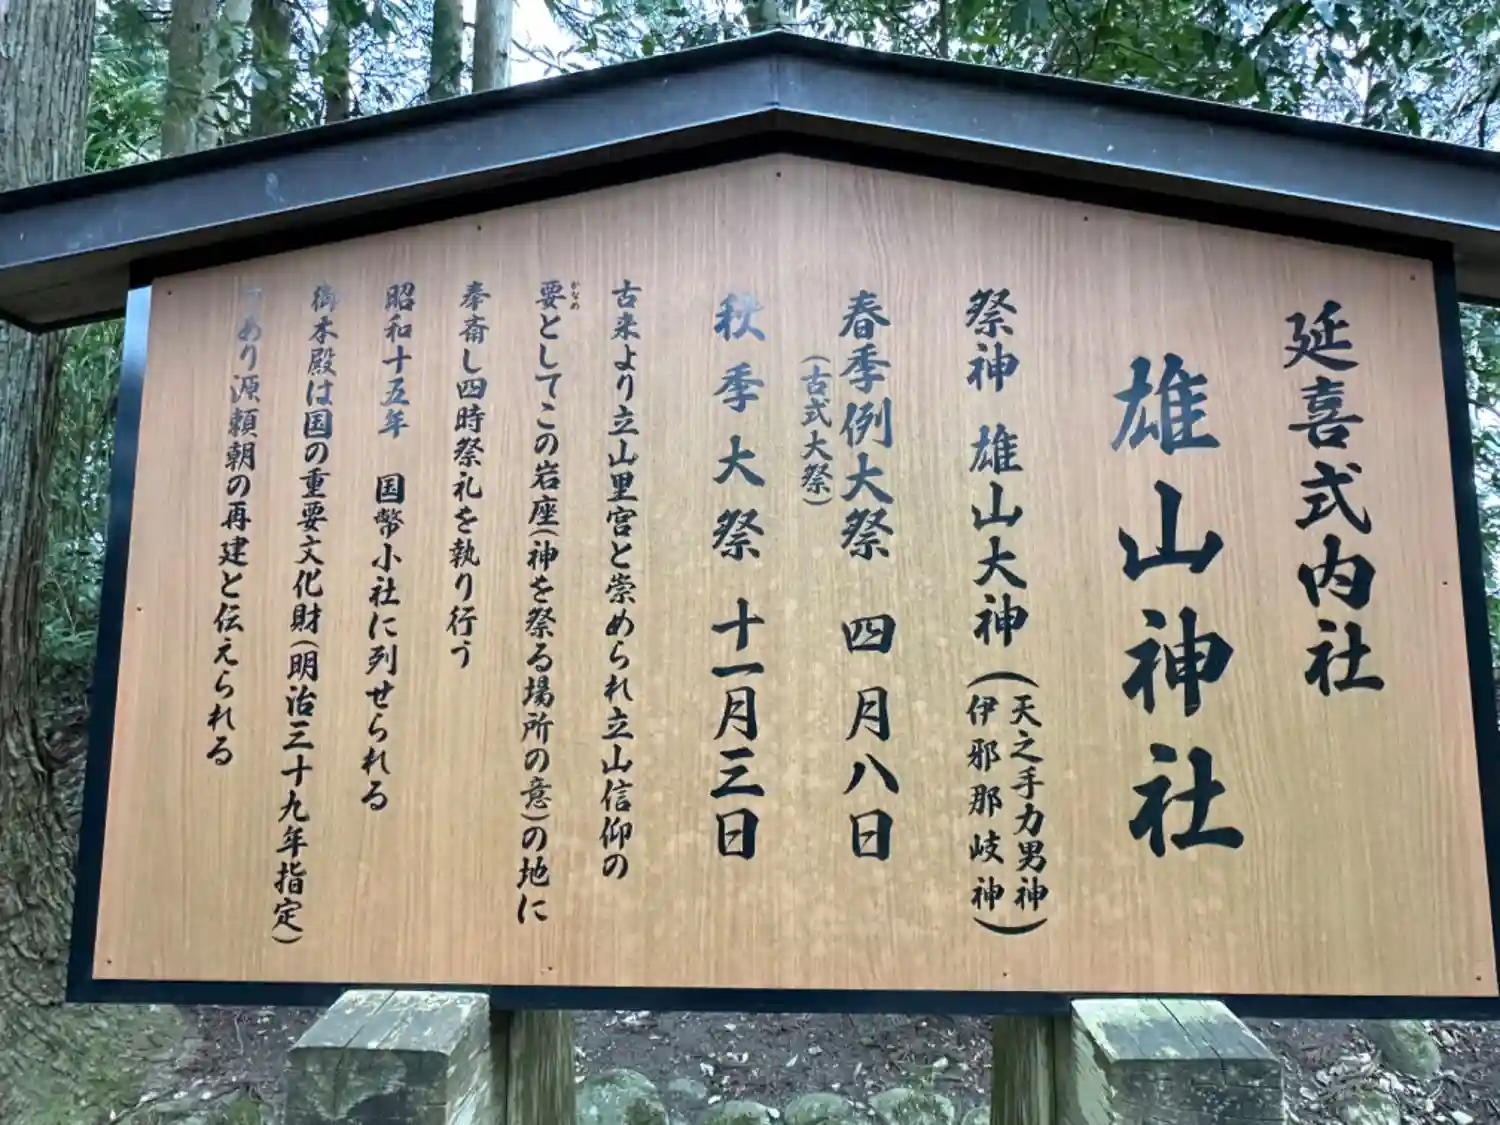 延喜式内社
雄山神社
祭神 雄山大神(天之手力男神
伊邪那岐神)
春季例大祭 四月八日
(古式大祭)
秋季大祭 十一月三日
古来より立山里宮と崇められ立山信仰の
要としてこの岩座(神を祭る場所の意)の地に
かなめ
奉斎し四時祭礼を執り行う
昭和十五年 国幣小社に列せられる
御本殿は国の重要文化財(明治三十九年指定)
あり源頼朝の再建と伝えられる